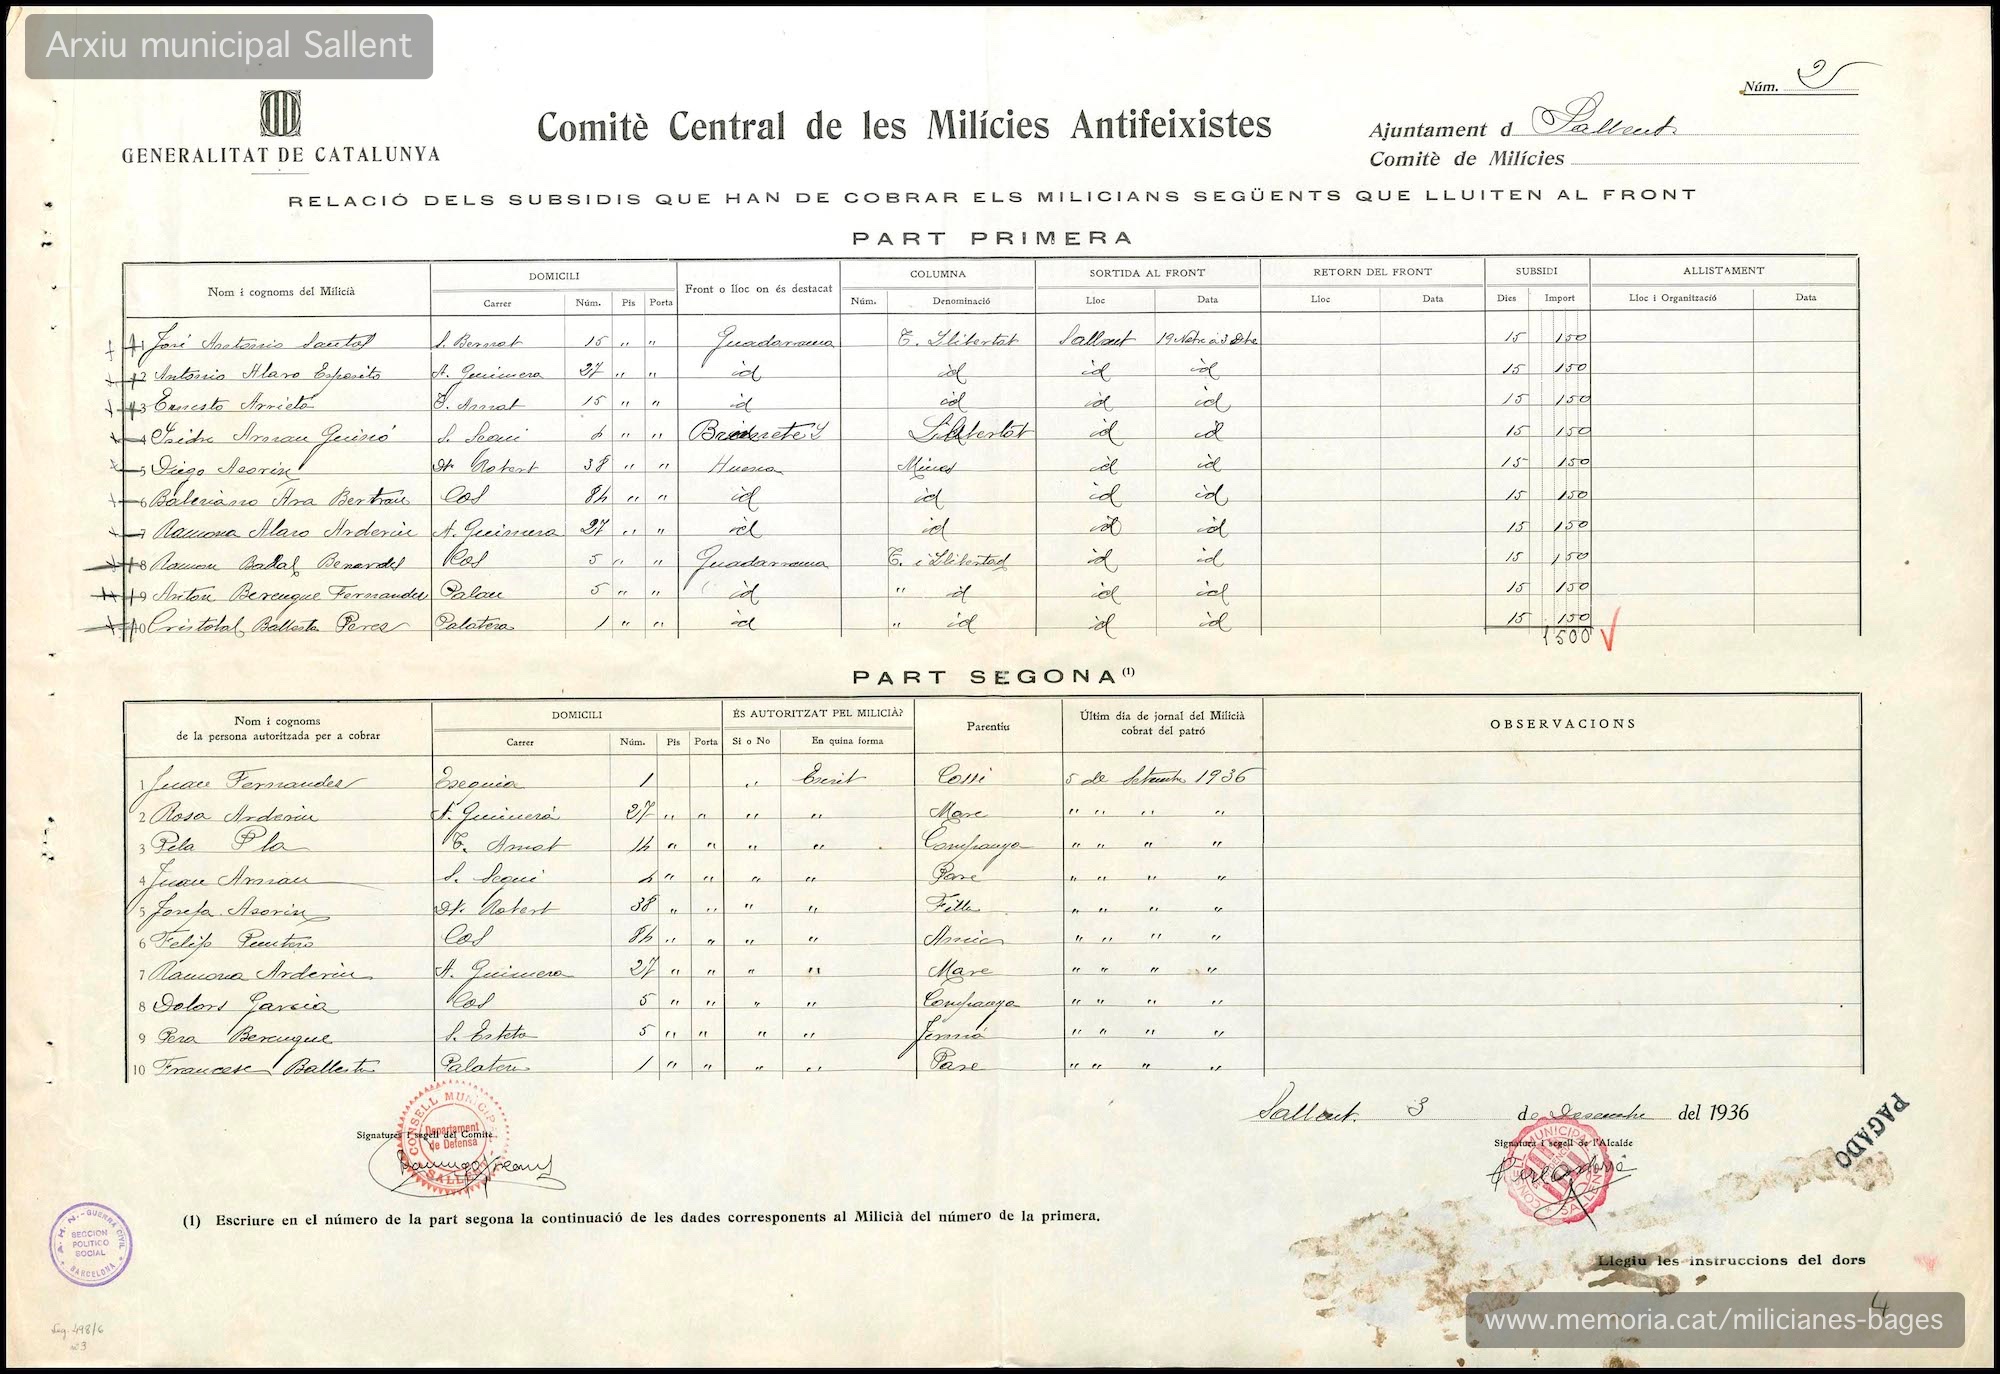 Arxiu municipal Sallent
Núm. 2
GENERALITAT DE CATALUNYA
Comitè Central de les Milícies Antifeixistes
Ajuntament d Sallent
Comitè de Milícies
RELACIÓ DELS SUBSIDIS QUE HAN DE COBRAR ELS MILICIANS SEGÜENTS QUE LLUITEN AL FRONT
PART PRIMERA
Nom i cognoms del Milicià DOMICILI Front o lloc on és destacat COLUMNA SORTIDA AL FRONT RETORN DEL FRONT SUBSIDI ALLISTAMENT
Carrer Núm. Pis Porta Núm. Denominació Lloc Data Lloc Data Dies Import Lloc i Organització Data
1 José Antonio S. Bernat 15 " " Guadarrama T. Llibertat Sallent 19 Nbre a 3 Dbre 15 150
2 Antonio Alaro Esposito A. Guimera 27 " " id id id id 15 150
3 Ernesto Arrieta T. Amat 15 " " id id id id 15 150
4 Isidre Arnau S. Segui 4 " " Llibertat id id 15 150
5 Diego Asorin Dr. Robert 38 " " Huesca Mines id id 15 150
6 Baleriano Ara Bertran Cos 84 " " id id id id 15 150
7 Ramona Alaro Arderiu A. Guimera 27 " " id id id id 15 150
8 Ramon Badal Cos 5 " " Guadarrama T. i Llibertad id id 15 150
9 Anton Berengue Fernandes Palau 5 " " id " id id id 15 150
10 Cristobal Ballesta Peres 1 " " id " id id id 15 150
1500
PART SEGONA (1)
Nom i cognoms de la persona autoritzada per a cobrar DOMICILI ÉS AUTORITZAT PEL MILICIÀ? Parentiu Últim dia de jornal del Milicià cobrat del patró OBSERVACIONS
Carrer Núm. Pis Porta Si o No En quina forma
1 Juan Fernandes Esequia 1 " Escrit Cosi 5 de Setembre 1936
2 Rosa Arderiu A. Guimerà 27 " " " " Mare " " " "
3 Pela Pla T. Amat 14 " " " " Companya " " " "
4 Juan Arnau S. Segui 4 " " " " Pare " " " "
5 Josefa Asorin Dr. Robert 38 " " " " Filla " " " "
6 Felip Cos 84 " " " " Amic " " " "
7 Ramona Arderiu A. Guimera 27 " " " " Mare " " " "
8 Dolors Garcia Cos 5 " " " " Companya " " " "
9 Pera Berengue S. Esteta 5 " " " " Jermá " " " "
10 Francesc Ballesta 1 " " " " Pare " " " "
Sallent 3 de Desembre del 1936
PAGADO
CONSELL MUNICIPAL
Departament de Defensa
SALLENT
Signatures i segell del Comitè
Signatura i segell de l'Alcalde
CONSELL MUNICIPAL SALLENT
(1) Escriure en el número de la part segona la continuació de les dades corresponents al Milicià del número de la primera.
A.H.N. - GUERRA CIVIL
SECCION
POLITICO
SOCIAL
BARCELONA
Llegiu les instruccions del dors
4
Leg. 498/6
www.memoria.cat/milicianes-bages